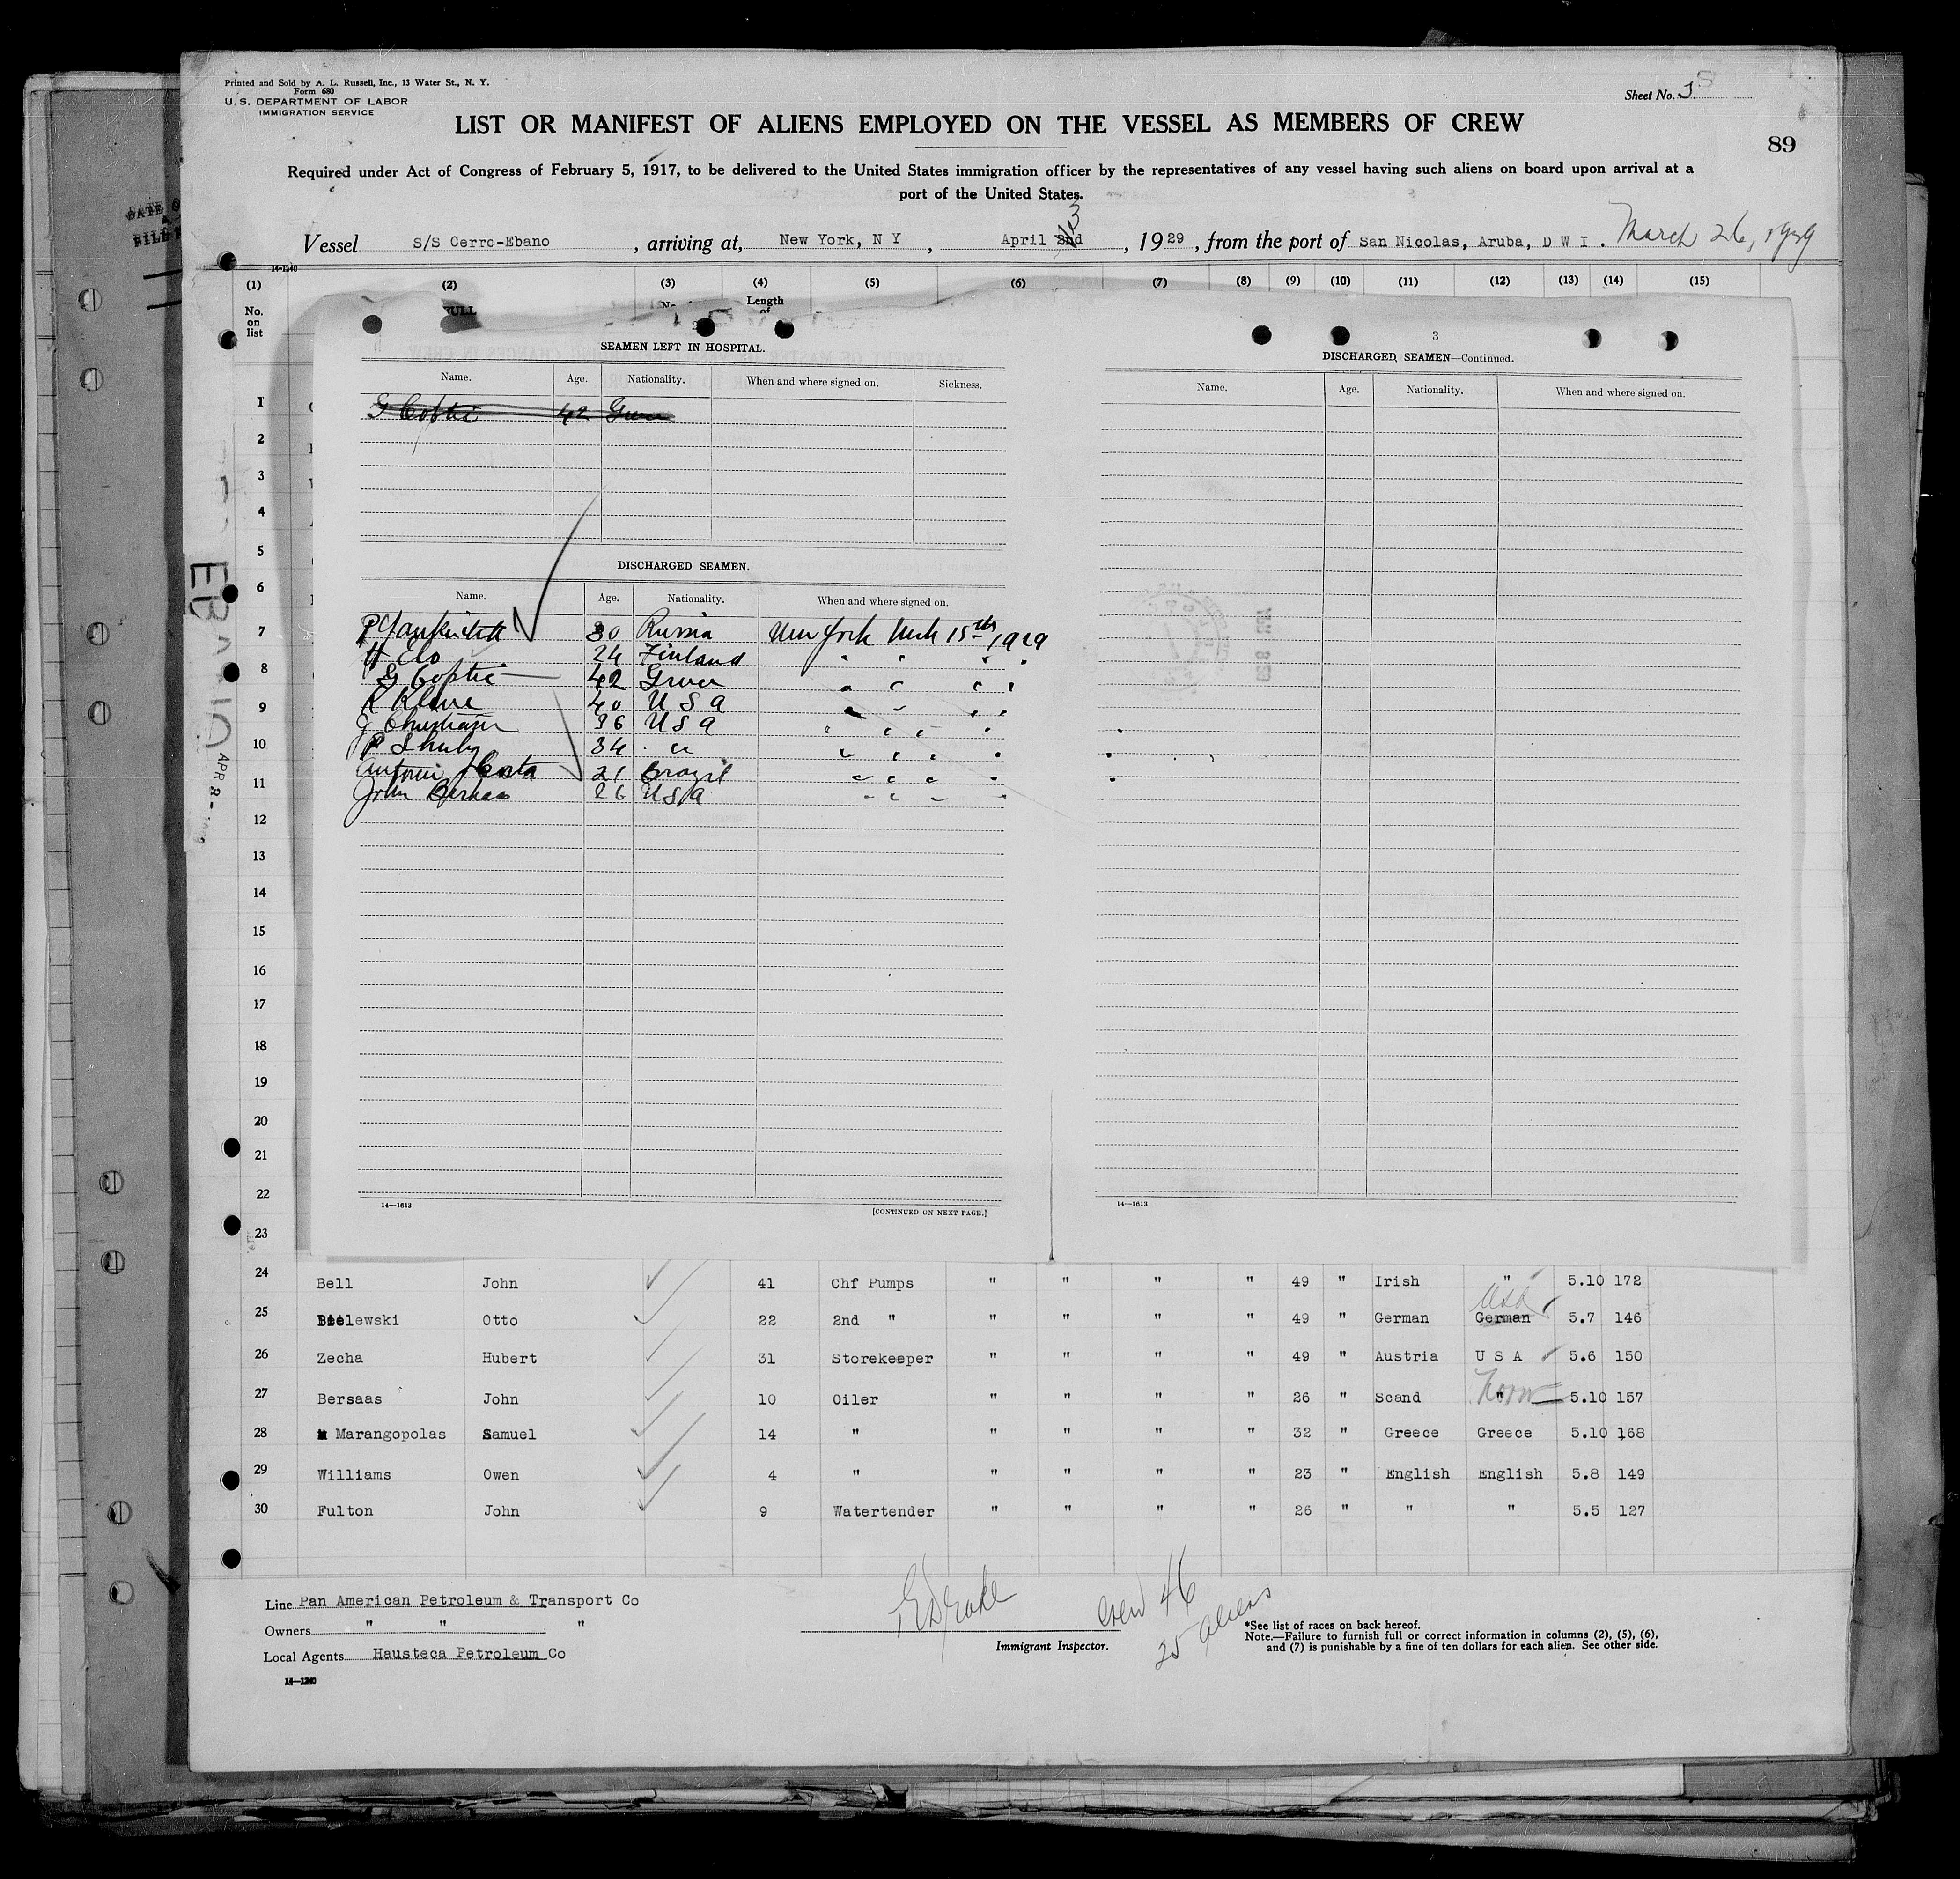 Printed and Sold by A. L. Russell, Inc., 13 Water St., N. Y.
Form 680
U. S. DEPARTMENT OF LABOR
IMMIGRATION SERVICE
Sheet No.
LIST OR MANIFEST OF ALIENS EMPLOYED ON THE VESSEL AS MEMBERS OF CREW
89
Required under Act of Congress of February 5, 1917, to be delivered to the United States immigration officer by the representatives of any vessel having such aliens on board upon arrival at a
port of the United States.
Vessel S/S Cerro-Ebano, arriving at, New York, N Y, April 2nd 3, 1929, from the port of San Nicolas, Aruba, D W I. March 26, 1929
14-1240
(1) (2) (3) (4) (5) (6) (7) (8) (9) (10) (11) (12) (13) (14) (15)
No. on list FULL No. Length of
SEAMEN LEFT IN HOSPITAL.
Name. Age. Nationality. When and where signed on. Sickness.
G Coptic 42 Greece
DISCHARGED SEAMEN.
Name. Age. Nationality. When and where signed on.
30 Russia New York Mch 15th 1929
H Elo 24 Finland " " " "
G Coptic 42 Greece " " " "
K Kline 40 U S A " " " "
J 36 U S A " " " "
P 34 " " " " " "
Antonio Costa 21 Brazil " " " "
John Bersaas 26 U S A " " " "
14—1613
[CONTINUED ON NEXT PAGE.]
3
DISCHARGED SEAMEN—Continued.
Name. Age. Nationality. When and where signed on.
14—1613
1
2
3
4
5
6
7
8
9
10
11
12
13
14
15
16
17
18
19
20
21
22
23
APR 8-
24 Bell John 41 Chf Pumps " " " " 49 " Irish " 5.10 172
25 Bielewski Otto 22 2nd " " " " " 49 " German German USA 5.7 146
26 Zecha Hubert 31 Storekeeper " " " " 49 " Austria U S A 5.6 150
27 Bersaas John 10 Oiler " " " " 26 " Scand " Norw 5.10 157
28 Marangopolas Samuel 14 " " " " " 32 " Greece Greece 5.10 168
29 Williams Owen 4 " " " " " 23 " English English 5.8 149
30 Fulton John 9 Watertender " " " " 26 " " " 5.5 127
Line Pan American Petroleum & Transport Co
Owners " " "
Local Agents Hausteca Petroleum Co
14—1240
Drake
Immigrant Inspector.
Crew 46
25 aliens
*See list of races on back hereof.
Note.—Failure to furnish full or correct information in columns (2), (5), (6),
and (7) is punishable by a fine of ten dollars for each alien. See other side.